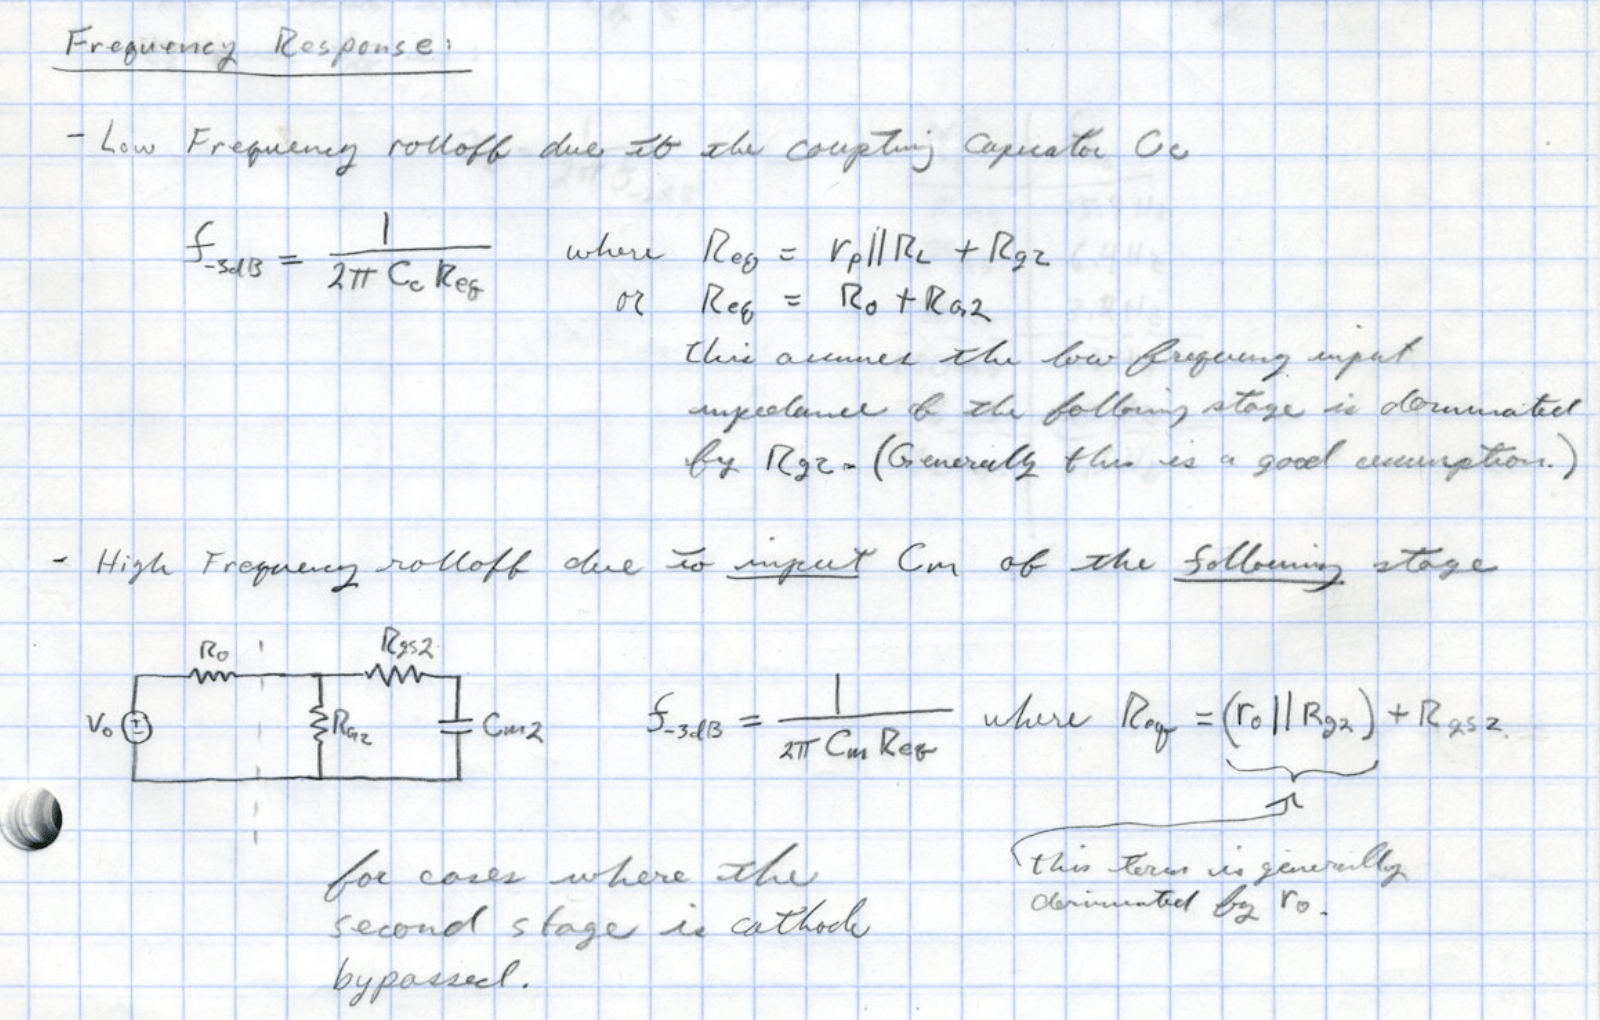 Frequency Response:
- Low Frequency rolloff due to the coupling capacitor Cc
f-3dB = 1 / 2π Cc Req where Req = rp||RL + Rg2
or Req = Ro + RG2
this assumes the low frequency input
impedance of the following stage is dominated
by Rg2. (Generally this is a good assumption.)
- High Frequency rolloff due to input Cm of the following stage
Ro Rgs2
Vo RG2 Cm2 f-3dB = 1 / 2π Cm Req where Req = (ro||Rg2) + Rgs2.
this term is generally
dominated by ro.
for cases where the
second stage is cathode
bypassed.